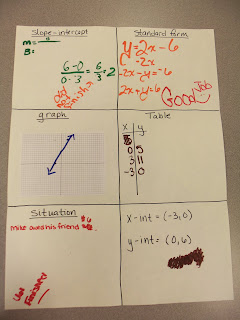 slope-intercept
m=
B=
6-0 = 6 = 2
0--3 3
Standard form
y=2x-6
-2x
-2x-y=-6
2x+y=6
Good Job
graph
Table
x y
0 5
3 11
-3 0
Situation
Mike owes his friend $6
x-int = (-3,0)
y-int = (0,6)